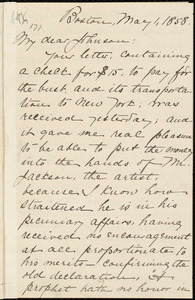 Boston, May 1, 1858.
My dear Johnson:
Your letter, containing
a check for $15, to pay for
the bust and its transporta-
tion to New York, was
received yesterday; and
it gave me real pleasure
to be able to put the money
into the hands of Mr.
Jackson, the artist,
because I know how
straitened he is in his
pecuniary affairs, having
received no encouragement
at all proportionate to
his merits—confirming the
old declaration, "A
prophet hath no honor in